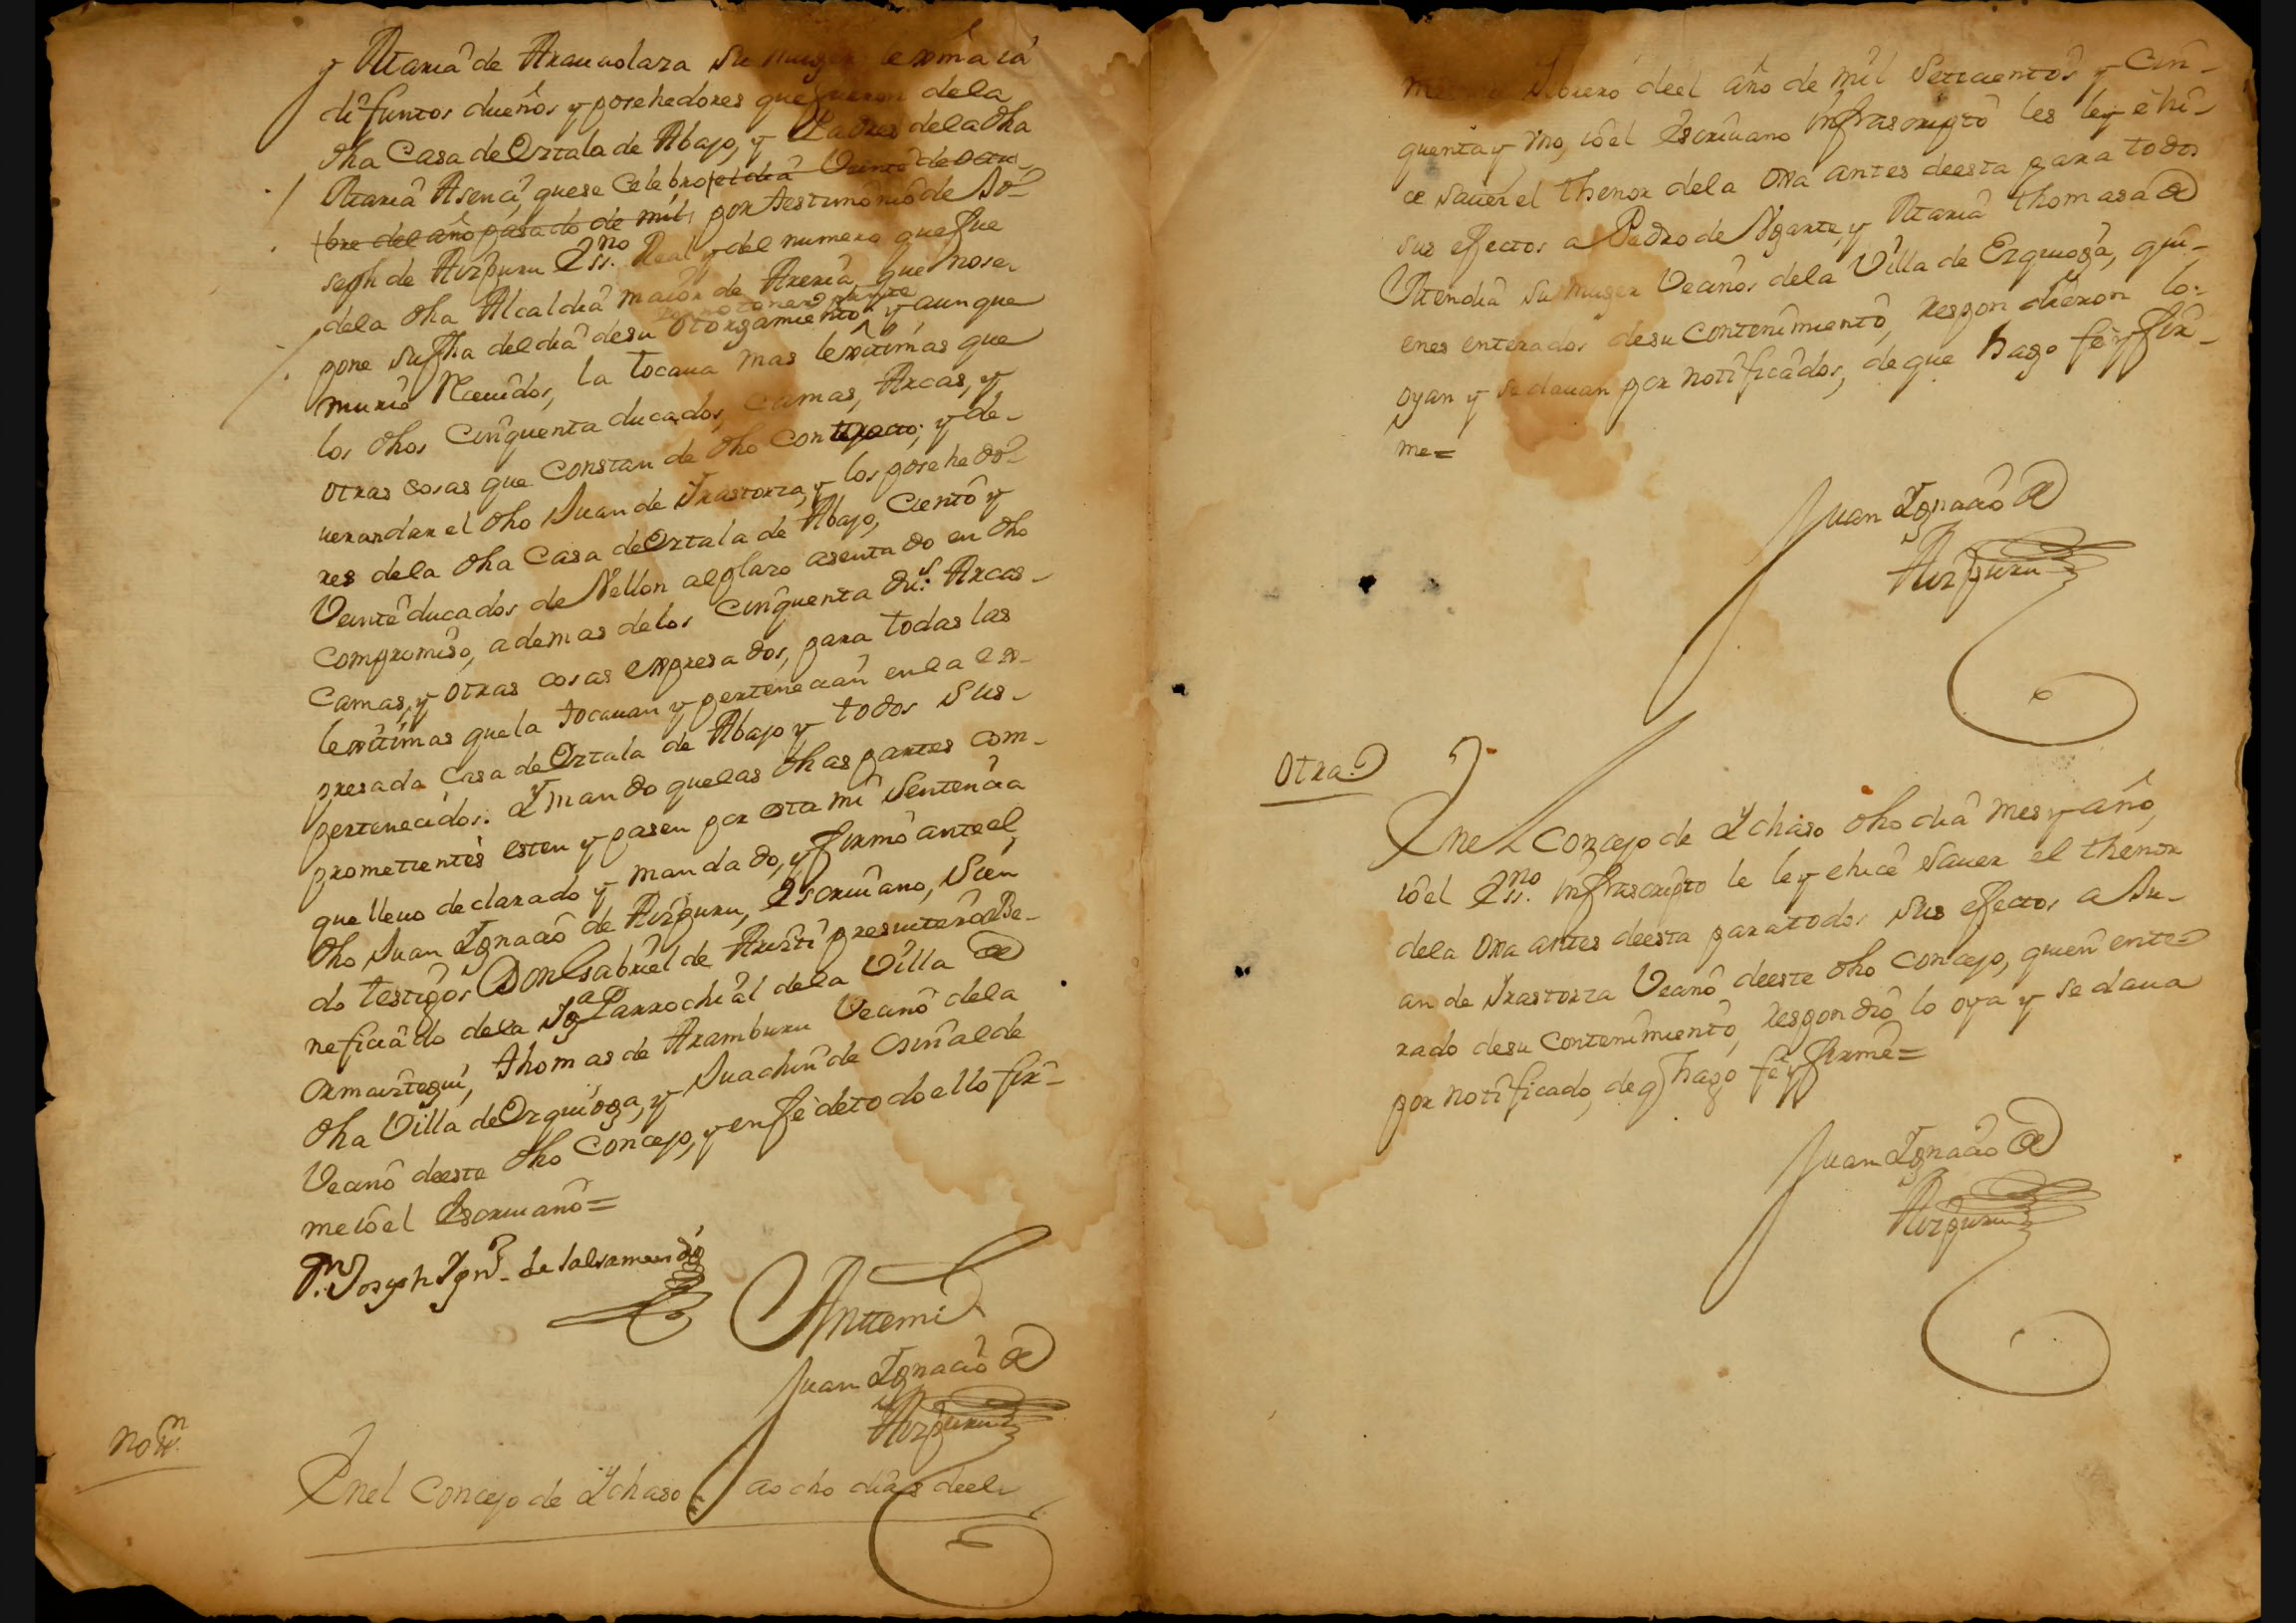 y Maria de Arauuolaza su muger lexma ia
difuntos dueños y posehedores que fueron dela
dha Casa de Oztala de Abajo, y Padres dela dha
Maria Asencia, que se Celebro el dia Veinte de octu-
bre del año pasado de mil por testimonio de Jo-
seph de Aizpuru Essno Real y del numero que fue
dela dha Alcaldia maior de Areria que nose
por no tener presente
pone su fha del dia de su otorgamiento y aunque
murio Nacidos, la tocaua mas lexitimas que
los dhos Cinquenta ducados, camas, Arcas, y
otras cosas que constan de dho Contrato; y de-
ueran dar el dho Juan de Yrastorza, y los posehedo-
res dela dha Casa de Oztala de Abajo, Ciento y
Veinte ducados de Vellon al plazo asentado en dho
Compromiso, ademas delos Cinquenta dus. Arcas
Camas, y otras cosas expresados, para todas las
lexitimas que la tocauan y pertenecian en la ex-
presada Casa de Oztala de Abajo y todos sus
pertenecidos. Y mando que las dhas partes com-
prometientes esten y pasen por esta mi Sentencia
que lleuo declarado y mandado, y firmo ante el
dho Juan Ygnacio de Aizpuru, Escriuano, Sien
do testigos Don Gabriel de Aristi presuitero Be-
neficiado dela Yga Parrochial dela Villa de
Ormaiztegui, Thomas de Aramburu Vecino dela
dha Villa de Ezquioga, y Juachin de Osinalde
Vecino deeste dho Concejo, y en fe de todo ello fir-
me io el Escriuano=
Dn. Joseph Ygno. de Salsamendi
Antemi
Juan Ygnacio de
Aizpuru
Notn.
Enel Concejo de Ychaso a ocho dias deel
mes de Febrero deel año de mil Setecientos y Cin-
quenta y vno, io el Escriuano infrascripto les ley e hi-
ce sauer el thenor dela ora antes deesta para todos
sus efectos a Pedro de Vgarte, y Maria thomasa de
Mendia su muger Vecinos dela Villa de Ezquioga, qui-
enes enterados desu Contenimiento, respondieron lo
oyan y se dauan por notificados, de que hago fe y fir-
me=
Juan Ygnacio de
Aizpuru
Otra
Enel Concejo de Ychaso dho dia mes y año,
io el Essno. infrascripto le ley e hice sauer el thenor
dela ora antes deesta para todos sus efectos a Ju-
an de Yrastorza Vecino deeste dho Concejo, quien ente-
rado desu Contenimiento, respondio lo oya y se daua
por notificado, de q hago fe y firme=
Juan Ygnacio de
Aizpuru